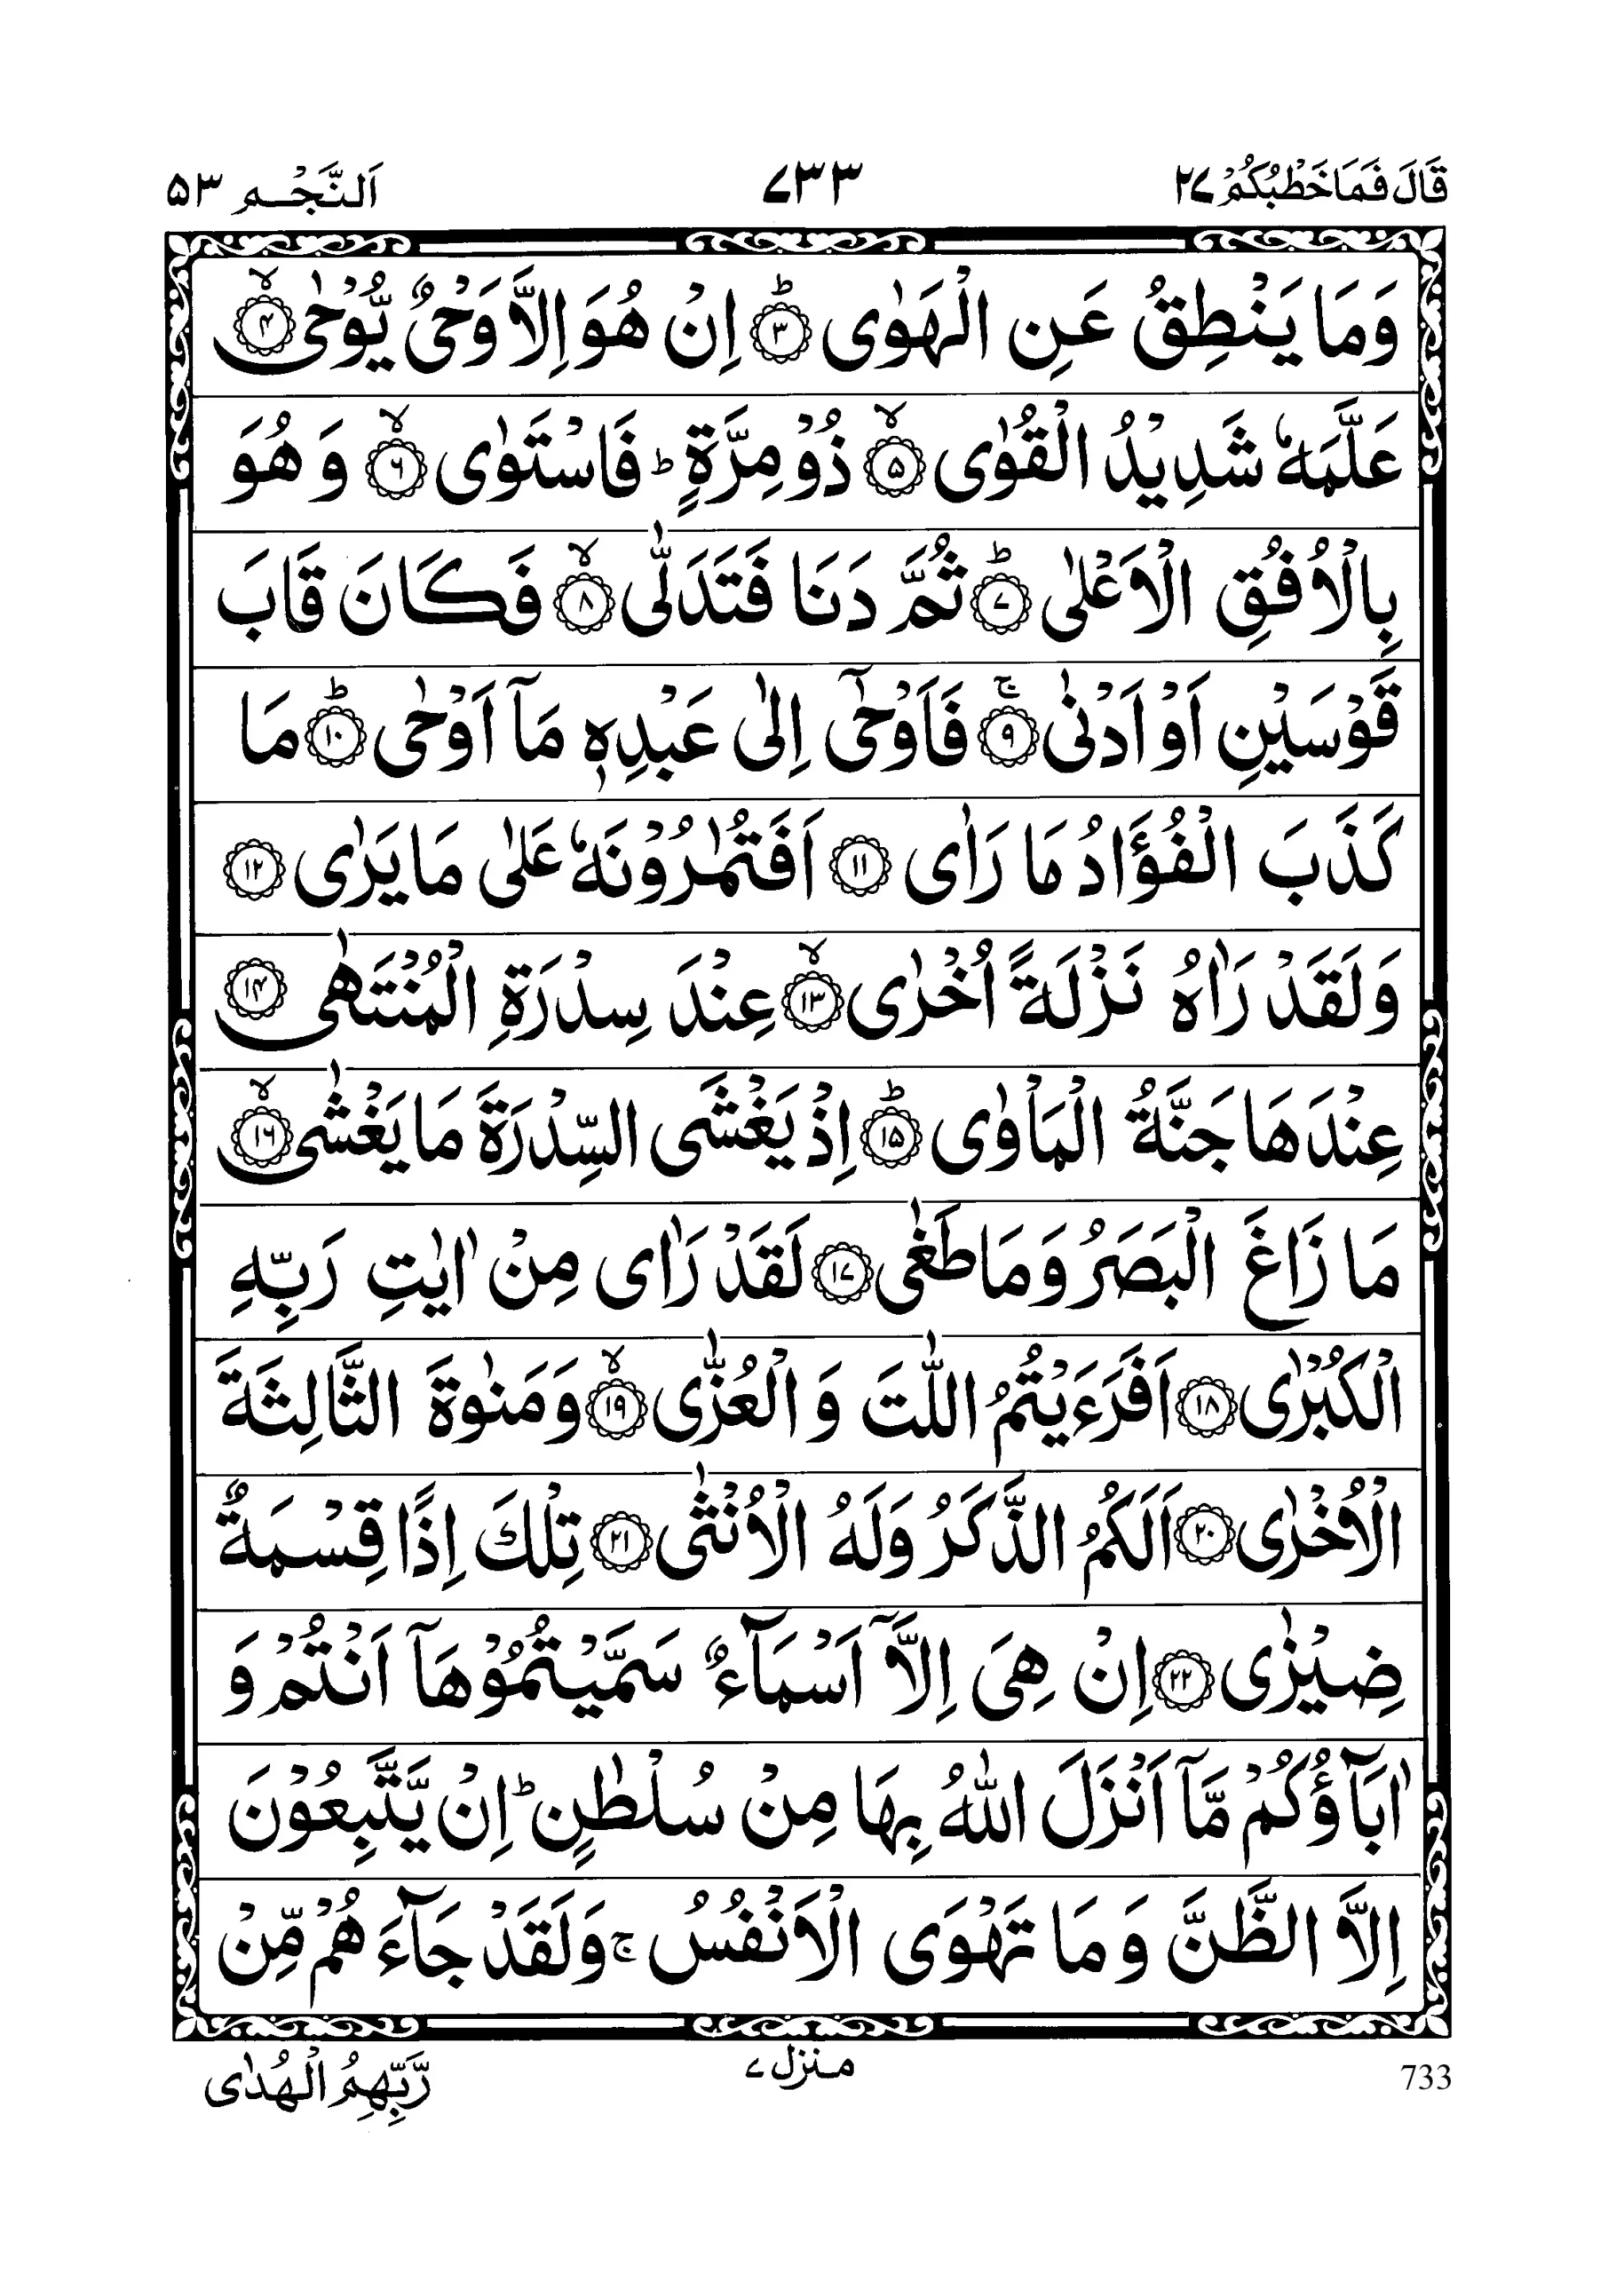 قَالَ فَمَا خَطْبُكُمْ ٢٧ ٧٣٣ اَلنَّجْم ٥٣
وَمَا يَنْطِقُ عَنِ الْهَوٰى ؕ﴿٣﴾ اِنْ هُوَ اِلَّا وَحْىٌ يُّوْحٰى ۙ﴿٤﴾
عَلَّمَهٗ شَدِيْدُ الْقُوٰى ۙ﴿٥﴾ ذُوْ مِرَّةٍ ؕ فَاسْتَوٰى ۙ﴿٦﴾ وَ هُوَ
بِالْاُفُقِ الْاَعْلٰى ؕ﴿٧﴾ ثُمَّ دَنَا فَتَدَلّٰى ۙ﴿٨﴾ فَكَانَ قَابَ
قَوْسَيْنِ اَوْ اَدْنٰى ۚ﴿٩﴾ فَاَوْحٰۤى اِلٰى عَبْدِهٖ مَاۤ اَوْحٰى ؕ﴿١٠﴾ مَا
كَذَبَ الْفُؤَادُ مَا رَاٰى ﴿١١﴾ اَفَتُمٰرُوْنَهٗ عَلٰى مَا يَرٰى ﴿١٢﴾
وَلَقَدْ رَاٰهُ نَزْلَةً اُخْرٰى ۙ﴿١٣﴾ عِنْدَ سِدْرَةِ الْمُنْتَهٰى ﴿١٤﴾
عِنْدَهَا جَنَّةُ الْمَاْوٰى ؕ﴿١٥﴾ اِذْ يَغْشَى السِّدْرَةَ مَا يَغْشٰى ۙ﴿١٦﴾
مَا زَاغَ الْبَصَرُ وَمَا طَغٰى ﴿١٧﴾ لَقَدْ رَاٰى مِنْ اٰيٰتِ رَبِّهِ
الْكُبْرٰى ﴿١٨﴾ اَفَرَءَيْتُمُ اللّٰتَ وَ الْعُزّٰى ۙ﴿١٩﴾ وَمَنٰوةَ الثَّالِثَةَ
الْاُخْرٰى ﴿٢٠﴾ اَلَكُمُ الذَّكَرُ وَلَهُ الْاُنْثٰى ﴿٢١﴾ تِلْكَ اِذًا قِسْمَةٌ
ضِيْزٰى ﴿٢٢﴾ اِنْ هِىَ اِلَّاۤ اَسْمَآءٌ سَمَّيْتُمُوْهَاۤ اَنْتُمْ وَ
اٰبَآؤُكُمْ مَّاۤ اَنْزَلَ اللّٰهُ بِهَا مِنْ سُلْطٰنٍ ؕ اِنْ يَّتَّبِعُوْنَ
اِلَّا الظَّنَّ وَ مَا تَهْوَى الْاَنْفُسُ ۚ وَلَقَدْ جَآءَهُمْ مِّنْ
733 منزل ٧ رَّبِّهِمُ الْهُدٰى